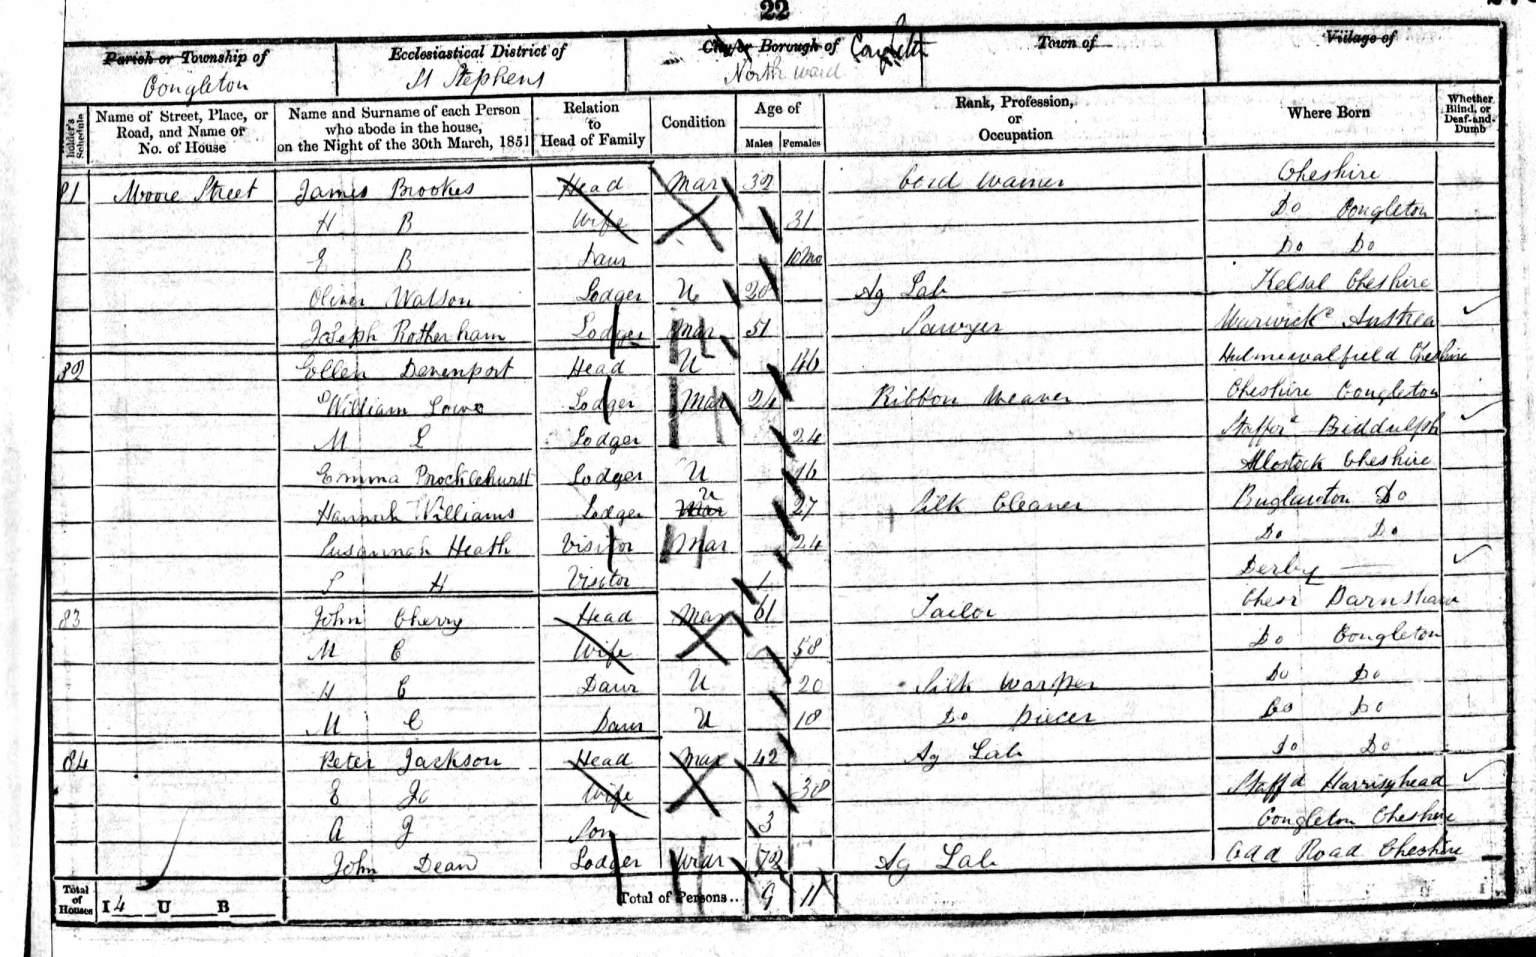 22
Parish or Township of Ecclesiastical District of City or Borough of Town of Village of
Congleton St Stephens North Ward Congleton
holder's Schedule
Name of Street, Place, or Road, and Name or No. of House
Name and Surname of each Person who abode in the house, on the Night of the 30th March, 1851
Relation to Head of Family
Condition
Age of
Males Females
Rank, Profession, or Occupation
Where Born
Whether Blind, or Deaf-and-Dumb
81 Moore Street James Brookes Head Mar 32 Cord Wainer Cheshire
H B Wife 31 Do Congleton
E B Daur 10mo Do Do
Oliver Watson Lodger U 20 Ag Lab Kelsal Cheshire
Joseph Rotherham Lodger Mar 51 Sawyer Warwick
82 Ellen Davenport Head U 46 Hulmewalfield Cheshire
William Lowe Lodger Mar 24 Ribbon Weaver Cheshire Congleton
M L Lodger 24 Staffor Biddulph
Emma Brocklehurst Lodger U 16 Allostock Cheshire
Hannah Williams Lodger Mar U 27 Silk Cleaner Buglawton Do
Susannah Heath Visitor Mar 24 Do Do
S H Visitor 1 Derby
83 John Cherry Head Mar 61 Tailor Chesr Darnshaw
M C Wife 58 Do Congleton
H C Daur U 20 Silk Warper Do Do
M C Daur U 18 Do Piecer Do Do
84 Peter Jackson Head Mar 42 Ag Lab Do Do
E Jo Wife 38 Staffd Harrisyhead
A J Son 3 Congleton Cheshire
John Dean Lodger 72 Ag Lab Odd Road Cheshire
Total of Houses I 4 U B Total of Persons.. 9 11